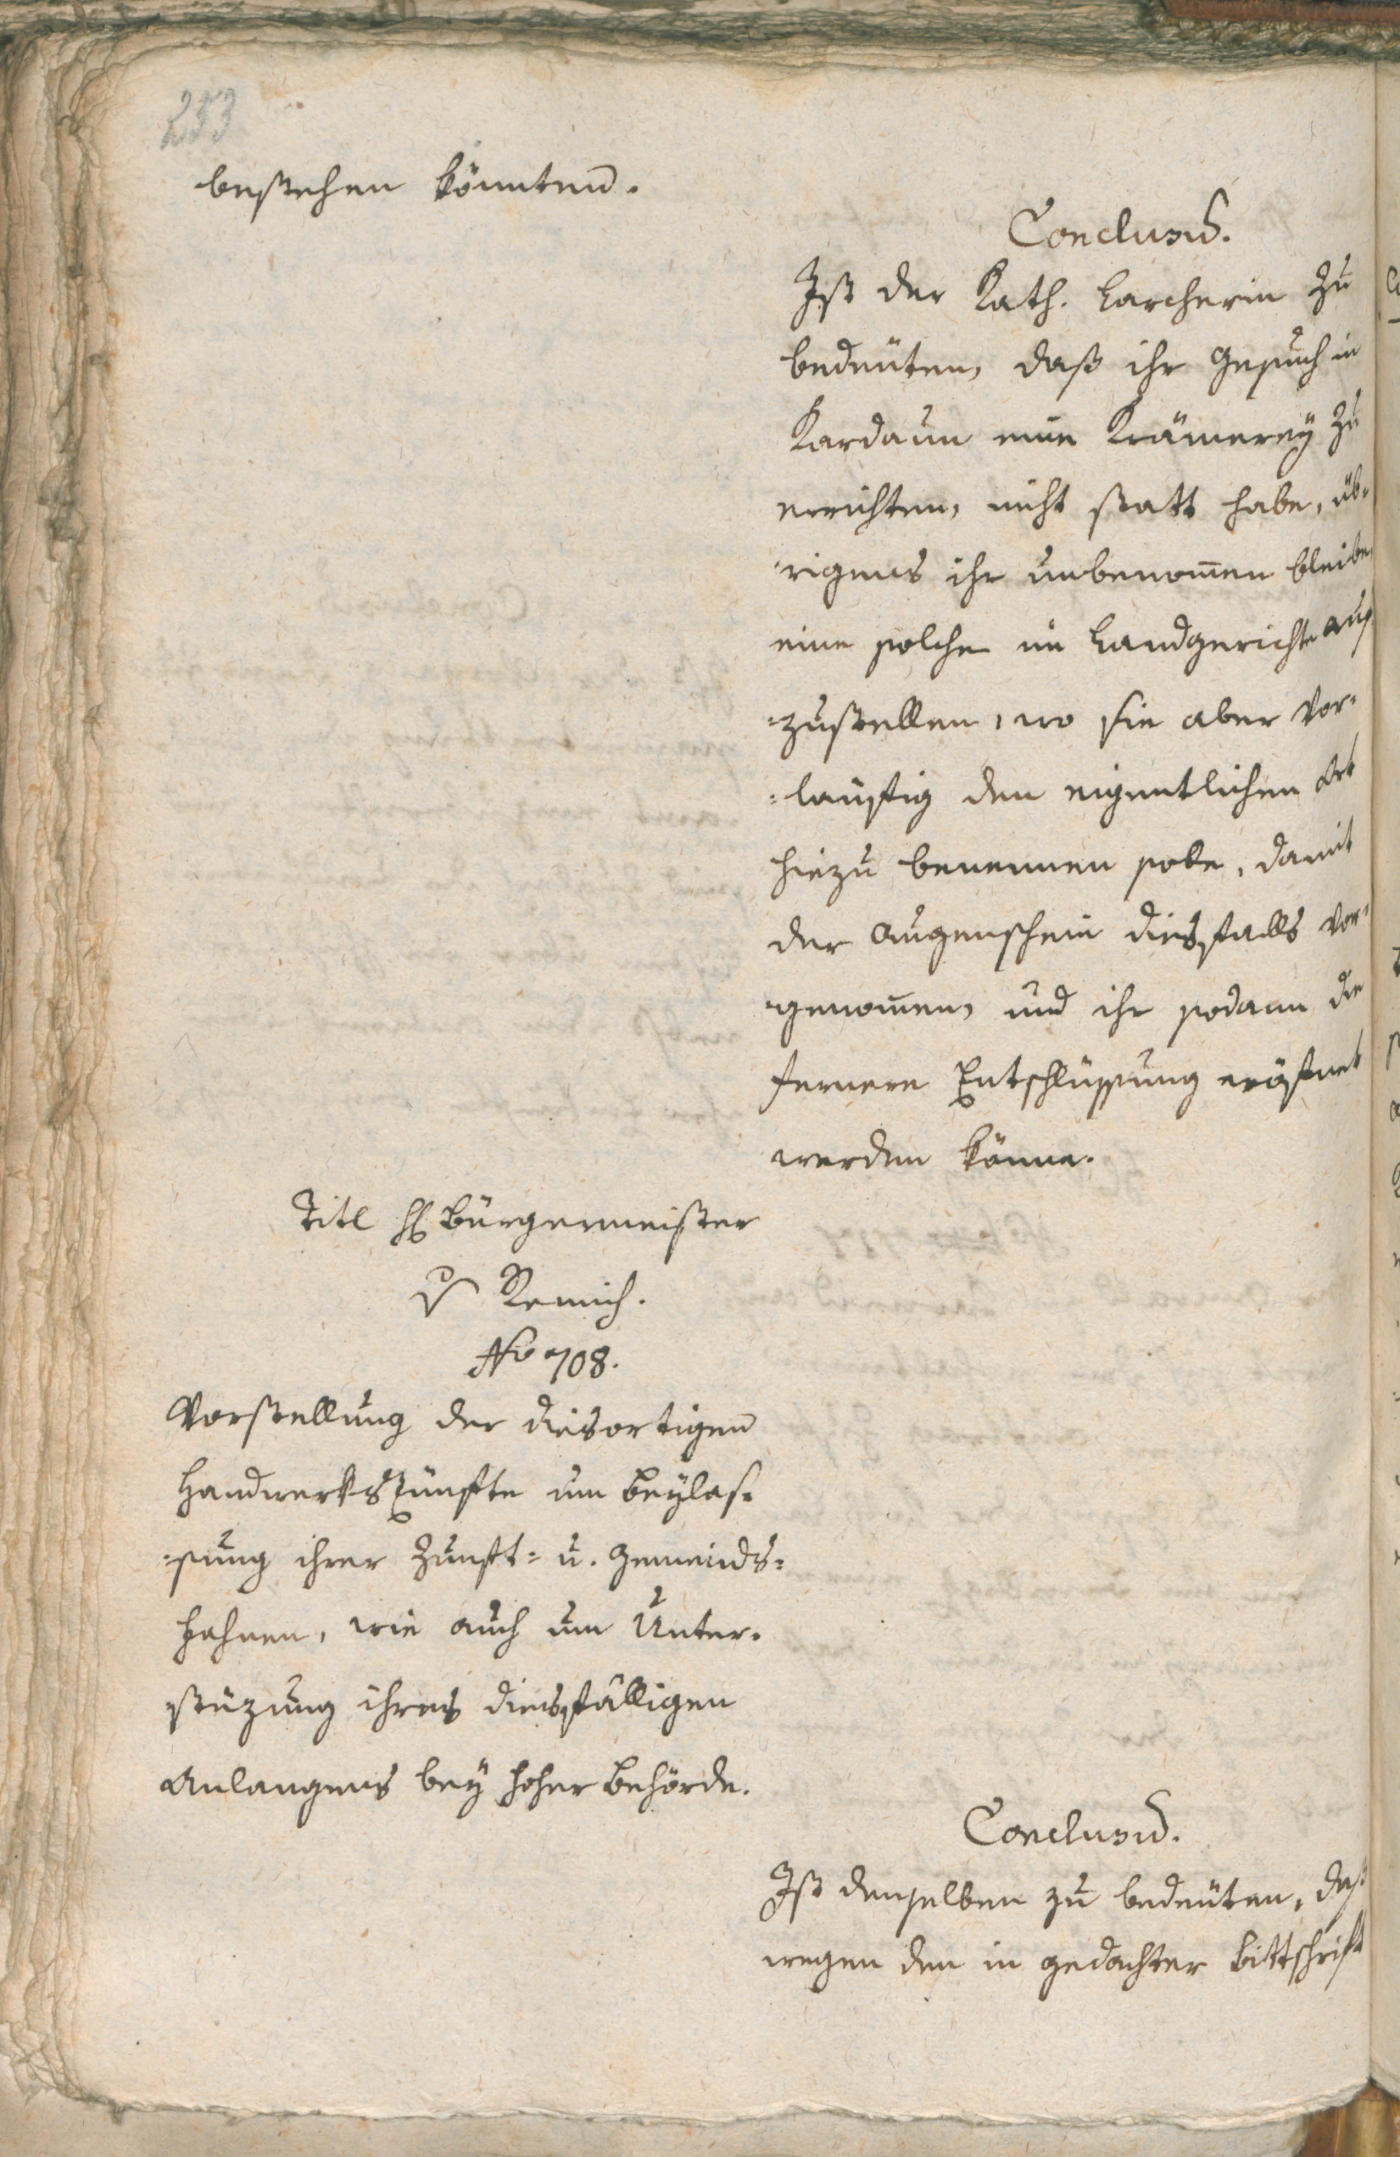 253
bestehen könnten.
Conclusum.
Ist der Kath. Larcherin zu
bedeüten, daß ihr Gesuch in
Kardaun eine Krämereÿ zu
errichten, nicht statt habe, üb-
rigens ihr unbenom̅en bleibe
eine solche im Landgerichte auf
=zustellen, wo sie aber vor-
=läuffig den eigentlichen Ort
hiezu benennen solle, damit
der Augenschein diesfalls vor-
genom̅en, und ihr sodann die
fernere Entschlüssung eröffnet
werden könne.
Titl H Bürgermeister
v Remich.
No 708.
Vorstellung der diesortigen
Handwerkszünfte um Beÿlas-
=sung ihrer Zunft= u. Gemeinds=
Fahnen, wie auch um Unter-
stüzung ihres diesfälligen
Anlangens beÿ hoher Behörde.
Conclusum.
Ist denselben zu bedeüten, daß
wegen den in gedachter Bittschrift